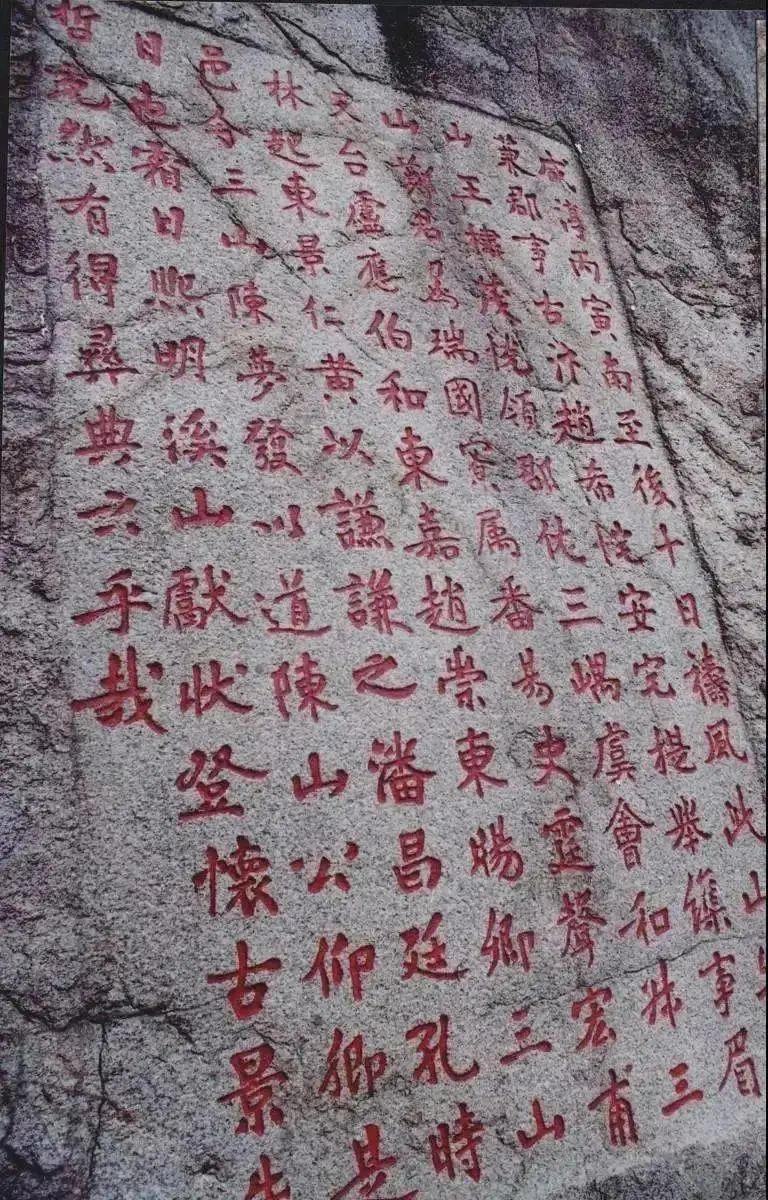 咸淳丙寅南至後十日禱風此山
兼郡事古汴趙希安宅提舉事眉
山王橚茂悅領郡佐三嵎虞會和叔三
山鄭君瑞國賓属番昜史霆聲宏甫
天台盧應伯和東嘉趙崇東暘卿三山
林起東景仁黃以謙謙之潘昌廷孔時
邑令三山陳夢發以道陳山公仰卿是
日也霜日熙明溪山獻狀登懷古景先
哲充然有得彝典云乎哉